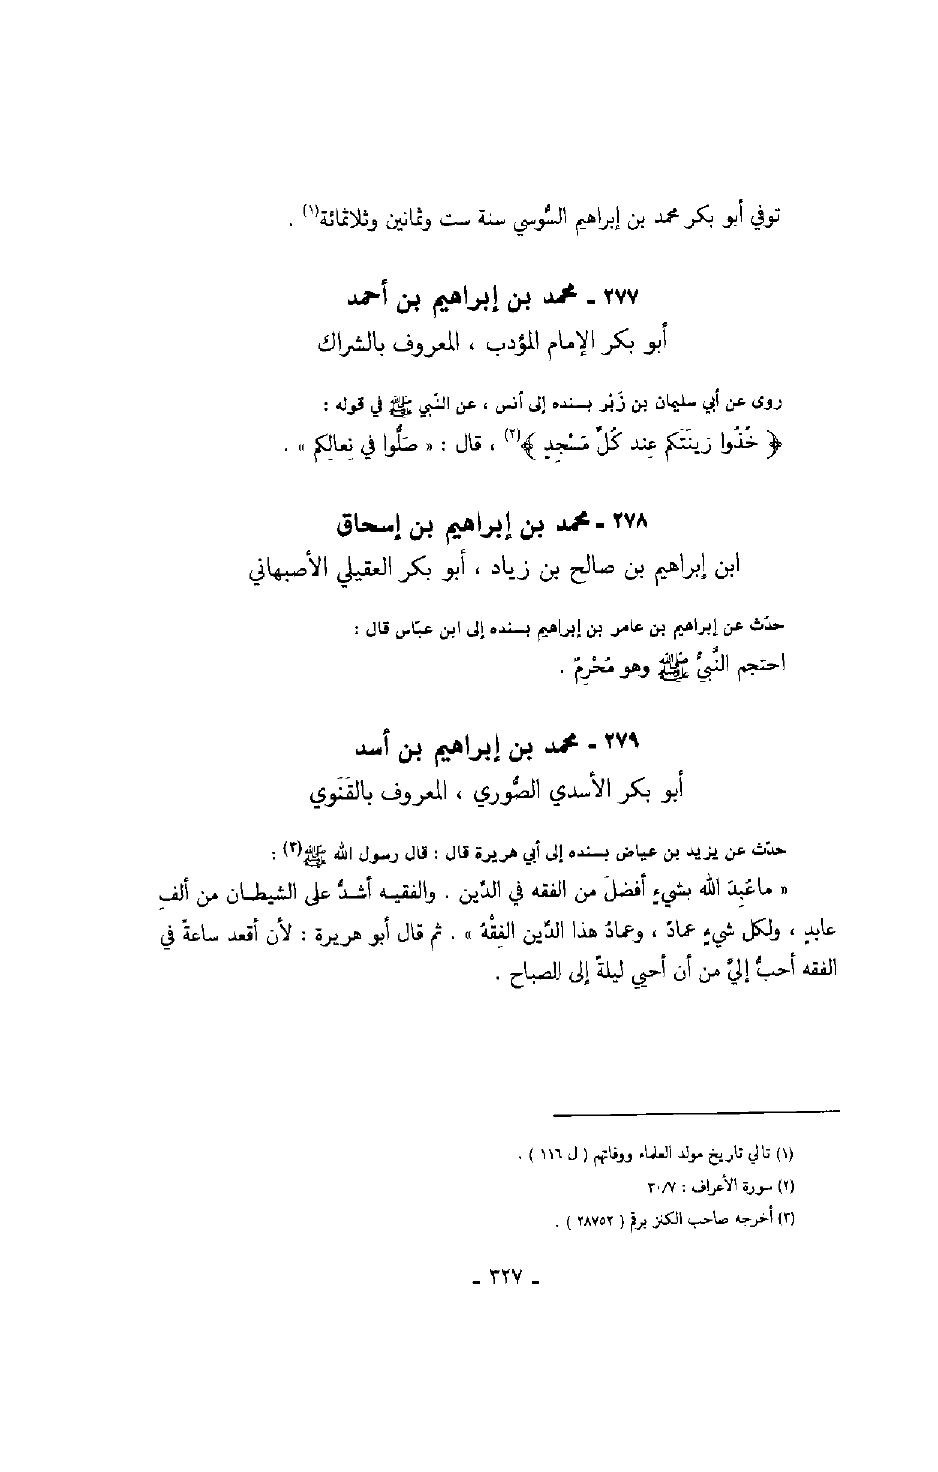 توفي أبو بكر محمد بن إبراهيم السُّوسي سنة ست وثمانين وثلاثمائة(١) .
٢٧٧ ـ محمد بن إبراهيم بن أحمد
أبو بكر الإمام المؤدب ، المعروف بالشراك
روى عن أبي سليمان بن زَبْر بسنده إلى أنس ، عن النَّبي ﷺ في قوله :
﴿ خُذُوا زِينَتَكم عِند كُلِّ مَسْجِدٍ ﴾(٢) ، قال : « صَلُّوا في نِعالِكم » .
٢٧٨ ـ محمد بن إبراهيم بن إسحاق
ابن إبراهيم بن صالح بن زياد ، أبو بكر العقيلي الأصبهاني
حدّث عن إبراهيم بن عامر بن إبراهيم بسنده إلى ابن عبّاس قال :
احتجم النَّبيُّ ﷺ وهو مُحْرِمٌ .
٢٧٩ ـ محمد بن إبراهيم بن أسد
أبو بكر الأسدي الصُّوري ، المعروف بالقَنَوي
حدّث عن يزيد بن عياض بسنده إلى أبي هريرة قال : قال رسول الله ﷺ(٣) :
« ماعُبِدَ الله بشيءٍ أفضلَ من الفقه في الدِّين . والفقيه أشدُّ على الشيطان من ألفِ
عابدٍ ، ولكل شيءٍ عمادٌ ، وعمادُ هذا الدِّين الفِقْهُ » . ثم قال أبو هريرة : لأن أقعد ساعةً في
الفقه أحبُّ إليَّ من أن أحيي ليلةً إلى الصباح .
(١) تالي تاريخ مولد العلماء ووفاتهم ( ل ١١٦ ) .
(٢) سورة الأعراف : ٣٠/٧
(٣) أخرجه صاحب الكنز برقم ( ٢٨٧٥٢ ) .
ـ ٣٢٧ ـ